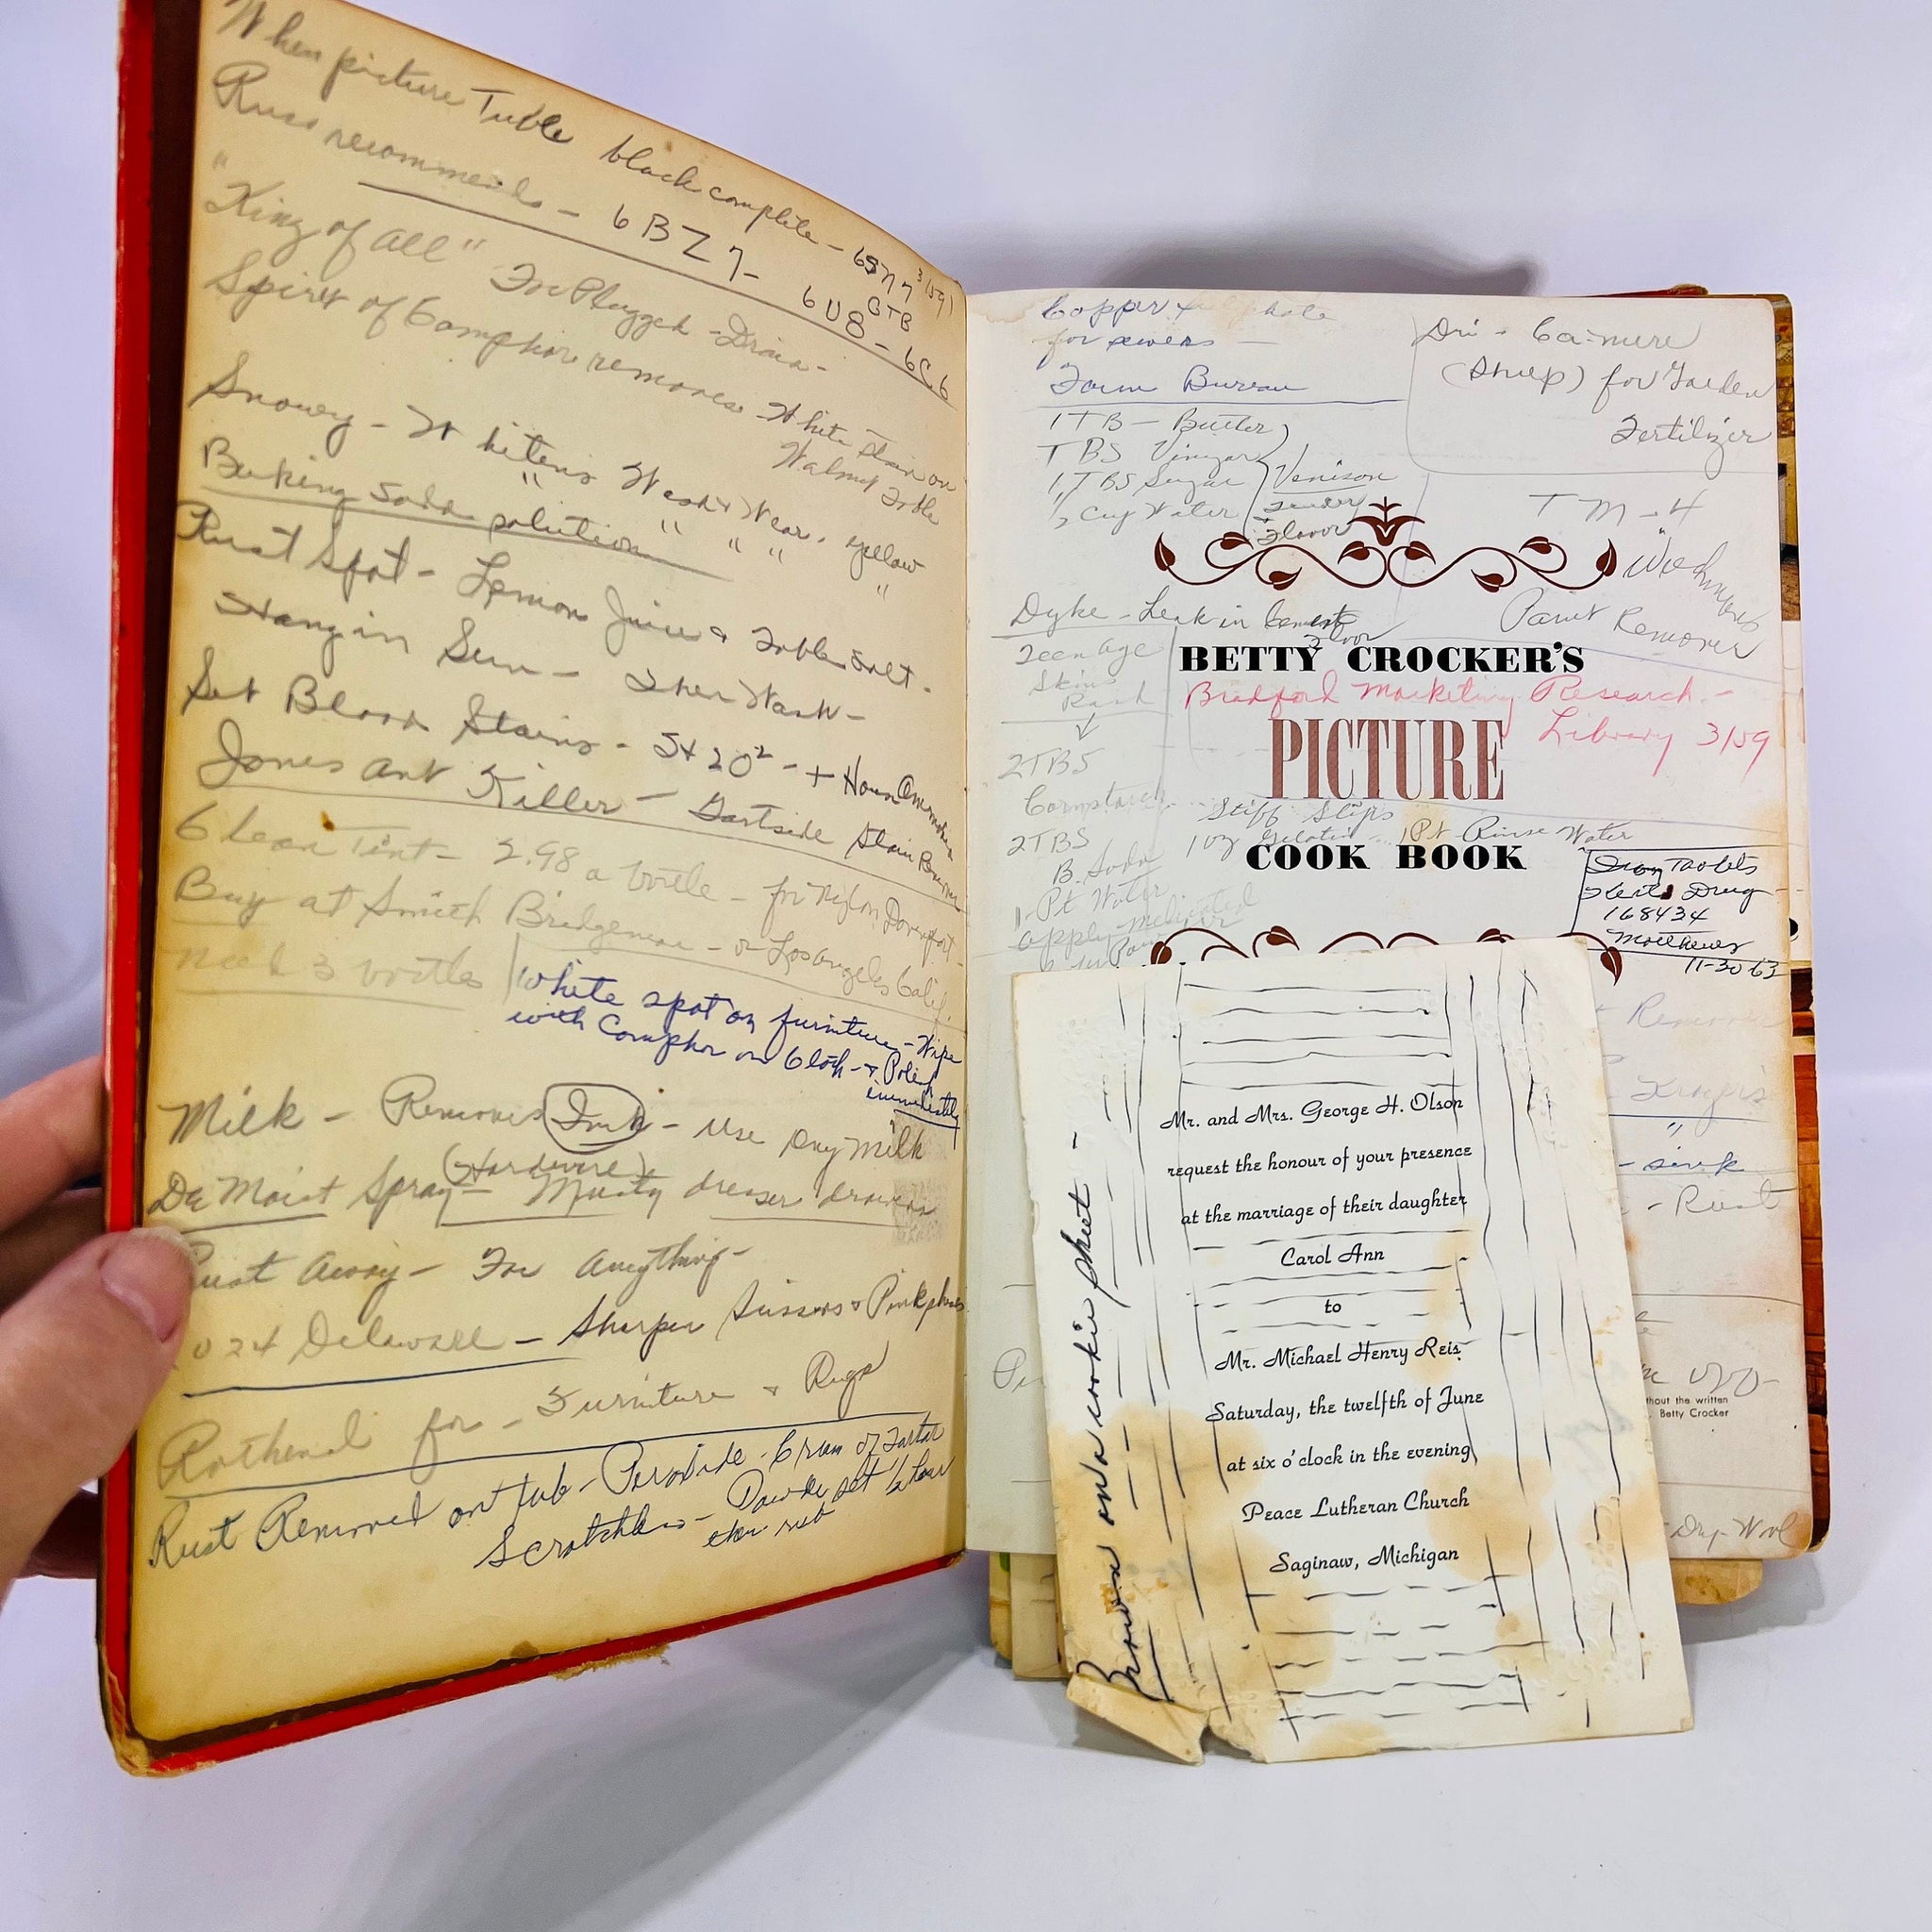 When picture Tube black complete - 6SN7
Russ recommends - 6BZ7 - 6U8 - 6C6
GTB
"King of all" For Plugged Drain -
Spirit of Camphor removes White Stain on
Walnut Table
Snowy - Whitens Wash & Wear, yellow
Baking Soda solution " " " "
Rust Spot - Lemon Juice & Table Salt -
Hang in Sun - Then Wash -
Set Blood Stains -
Jones Ant Killer - Gartside Stain Remover
Clean Tint - 2.98 a bottle - for Nylon Davenport -
Buy at Smith Bridgeman - or Los Angeles Calif.
need 3 bottles
White spot on furniture - Wipe
with Camphor on Cloth - & Polish
immediately
Milk - Removes Ink - use Dry milk
De Moist Spray - (Hardware) Musty dresser drawers
Rust Away - For Anything -
Delaware - Sharpen Sissors &
for - Furniture & Rugs
Rust Removed on tub - Peroxide - Cream of Tartar
Powder set 1/2 hour
then rub
Copper
for sewers -
Farm Bureau
1 TB - Butter
TBS Vinegar
1 TBS Sugar
1/2 Cup Water
Venison
Tender
&
Flavor
(Sheep) for Garden
Fertilizer
TM-4
Paint Remover
Dyke - Leak in Cement
Floor
Teen age
Skin
Rash
2 TBS
Cornstarch
2 TBS
B. Soda
1 Pt Water
apply medicated
BETTY CROCKER'S
Bradford Marketing Research -
Library 3/59
PICTURE
Stiff Slips
1 oz Gelatin 1 Pt Rinse Water
COOK BOOK
Iron Tablets
Drug
168434
Matthews
11-30 63
- sink
- Rust
hout the written
Betty Crocker
- Dry Wool
Brown on a cookie sheet -
Mr. and Mrs. George H. Olson
request the honour of your presence
at the marriage of their daughter
Carol Ann
to
Mr. Michael Henry Reis
Saturday, the twelfth of June
at six o'clock in the evening
Peace Lutheran Church
Saginaw, Michigan